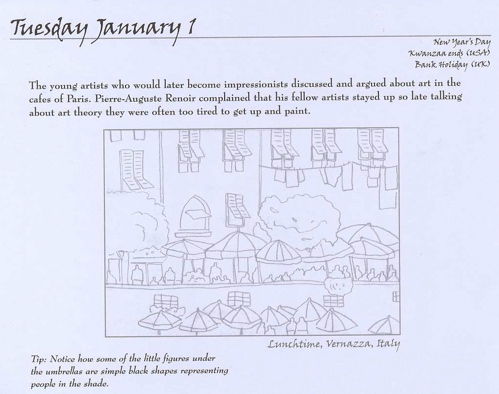 Tuesday January 1
New Year's Day
Kwanzaa ends (USA)
Bank Holiday (UK)
The young artists who would later become impressionists discussed and argued about art in the
cafes of Paris. Pierre-Auguste Renoir complained that his fellow artists stayed up so late talking
about art theory they were often too tired to get up and paint.
Lunchtime, Vernazza, Italy
Tip: Notice how some of the little figures under
the umbrellas are simple black shapes representing
people in the shade.